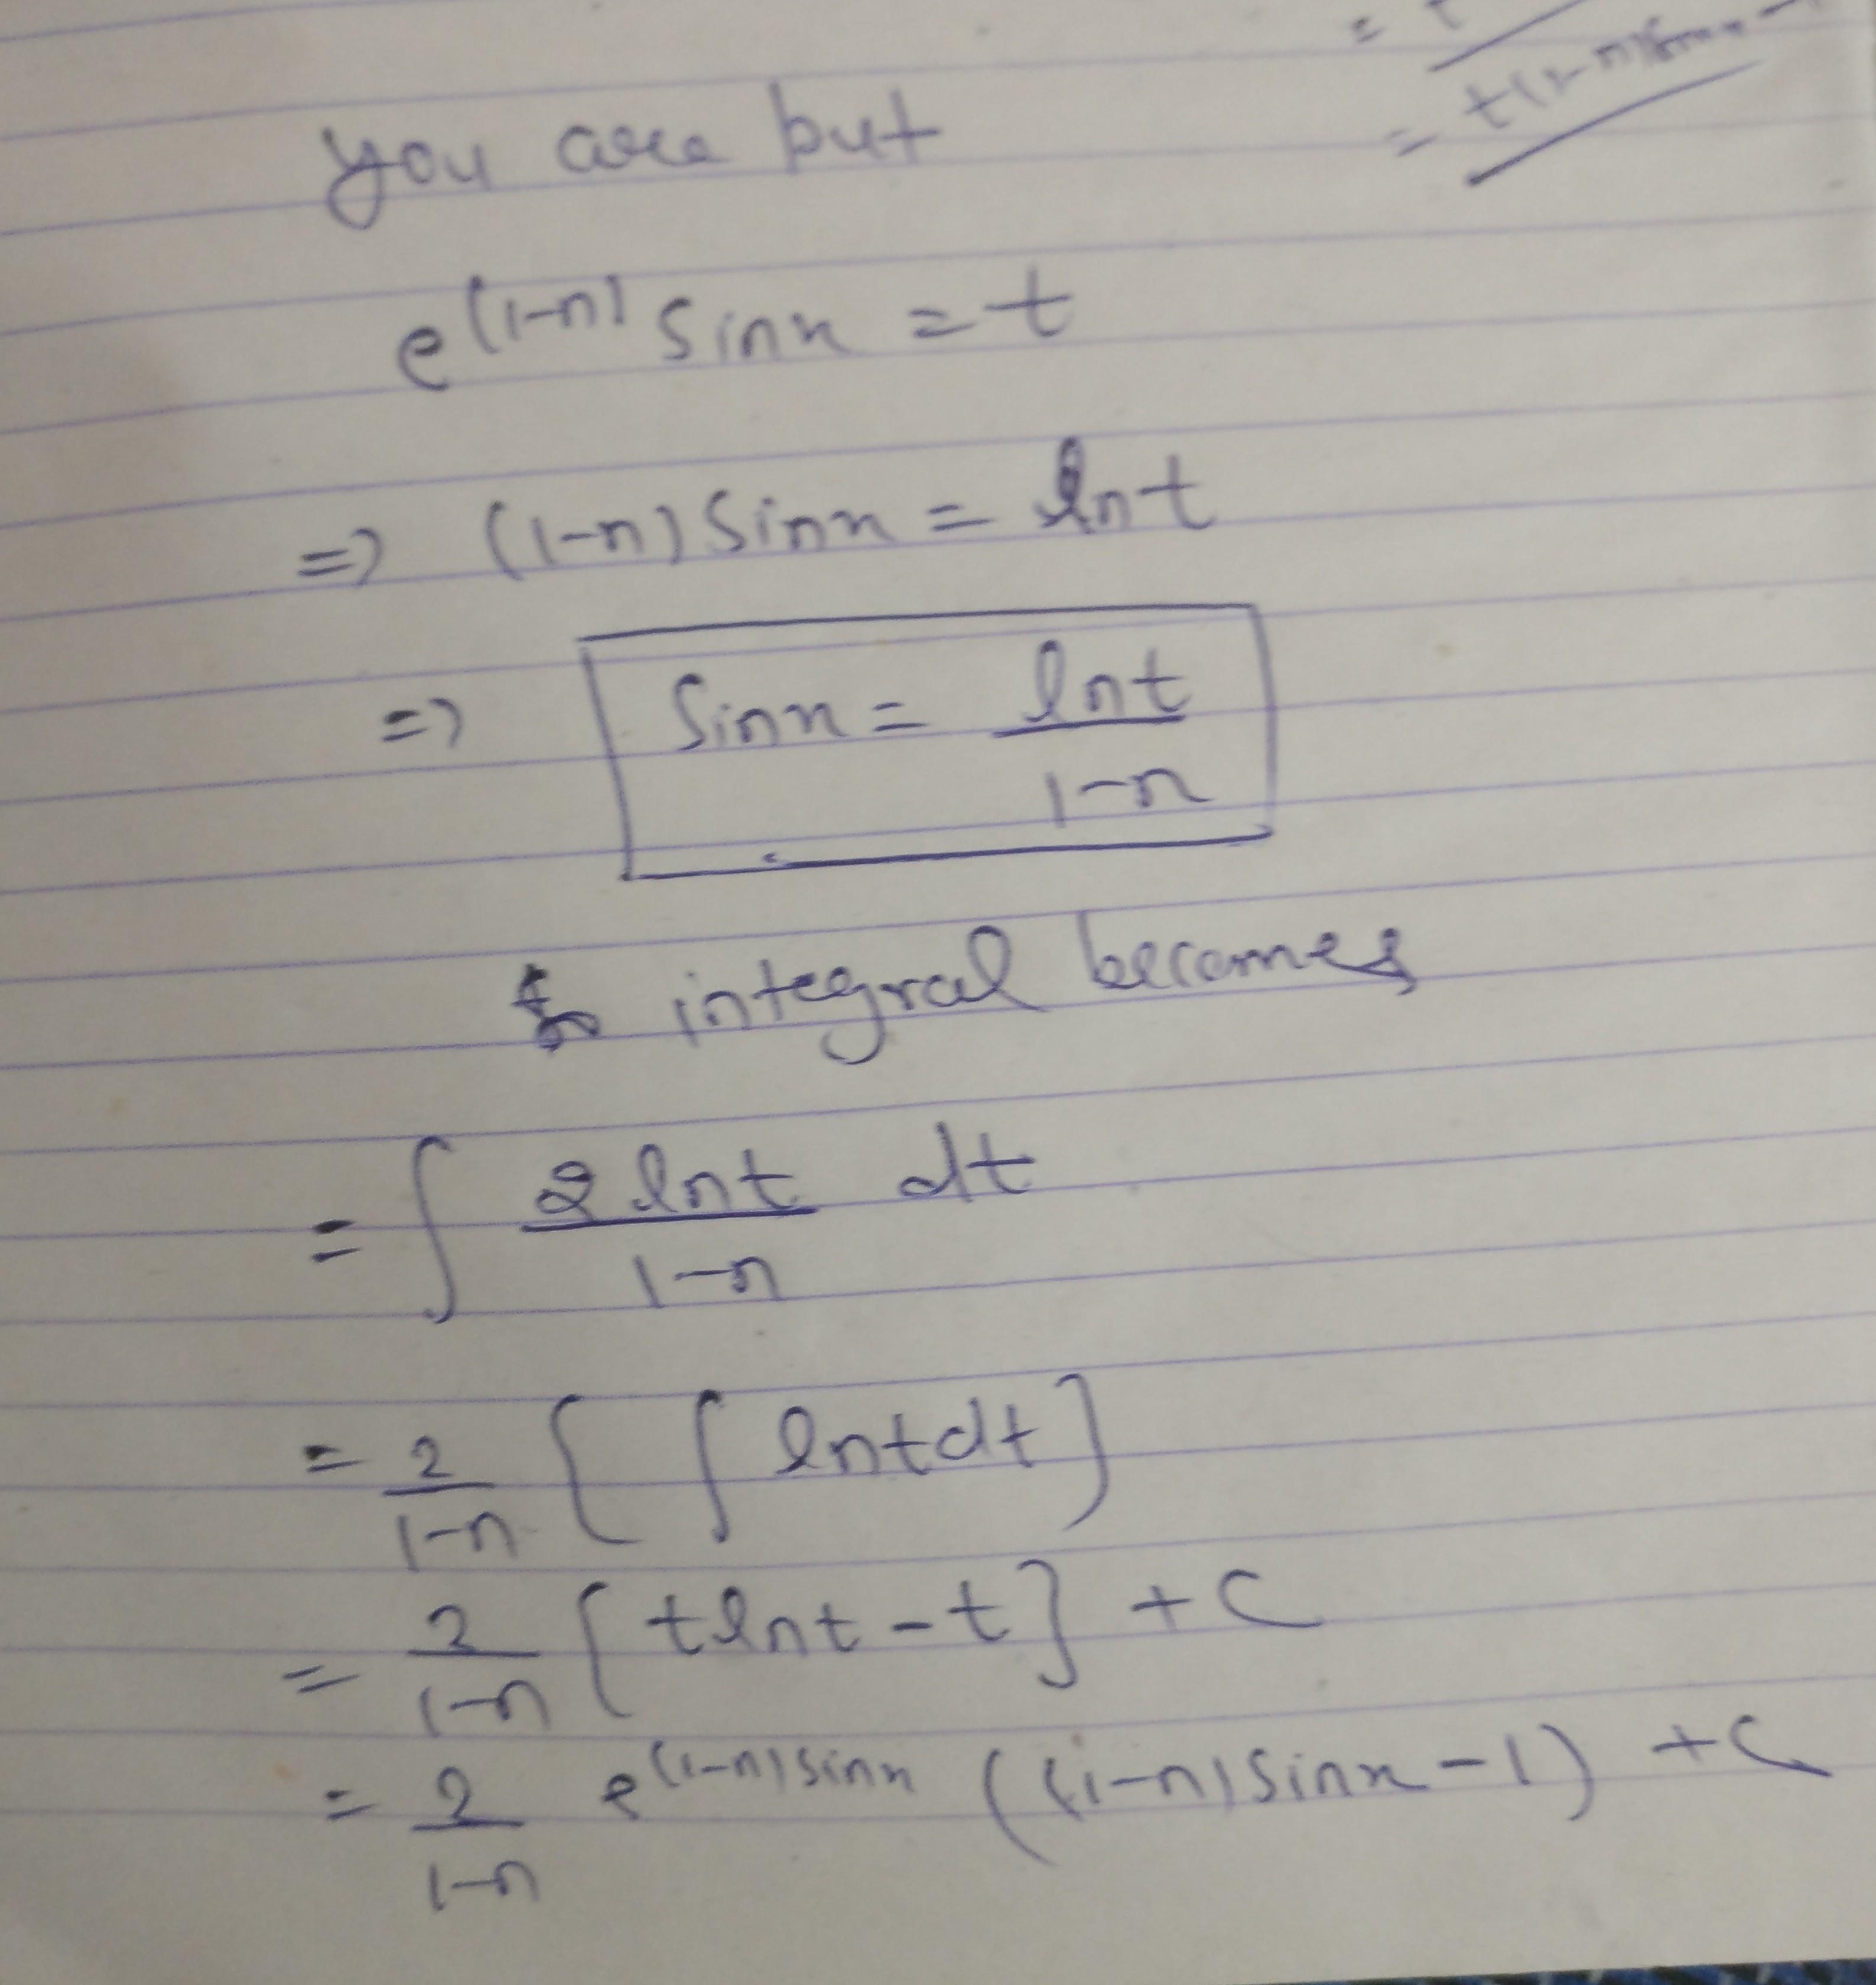 = t
= t(1-n)sinn - t
you are but
e^(1-n) sinx = t
=> (1-n) Sinn = lnt
=> Sinn = lnt / 1-n
integral becomes
= ∫ 2 lnt / 1-n dt
= 2 / 1-n [ ∫ lntdt ]
= 2 / 1-n [ tlnt - t ] + C
= 2 / 1-n e^(1-n)sinn ((1-n)sinx - 1) + C